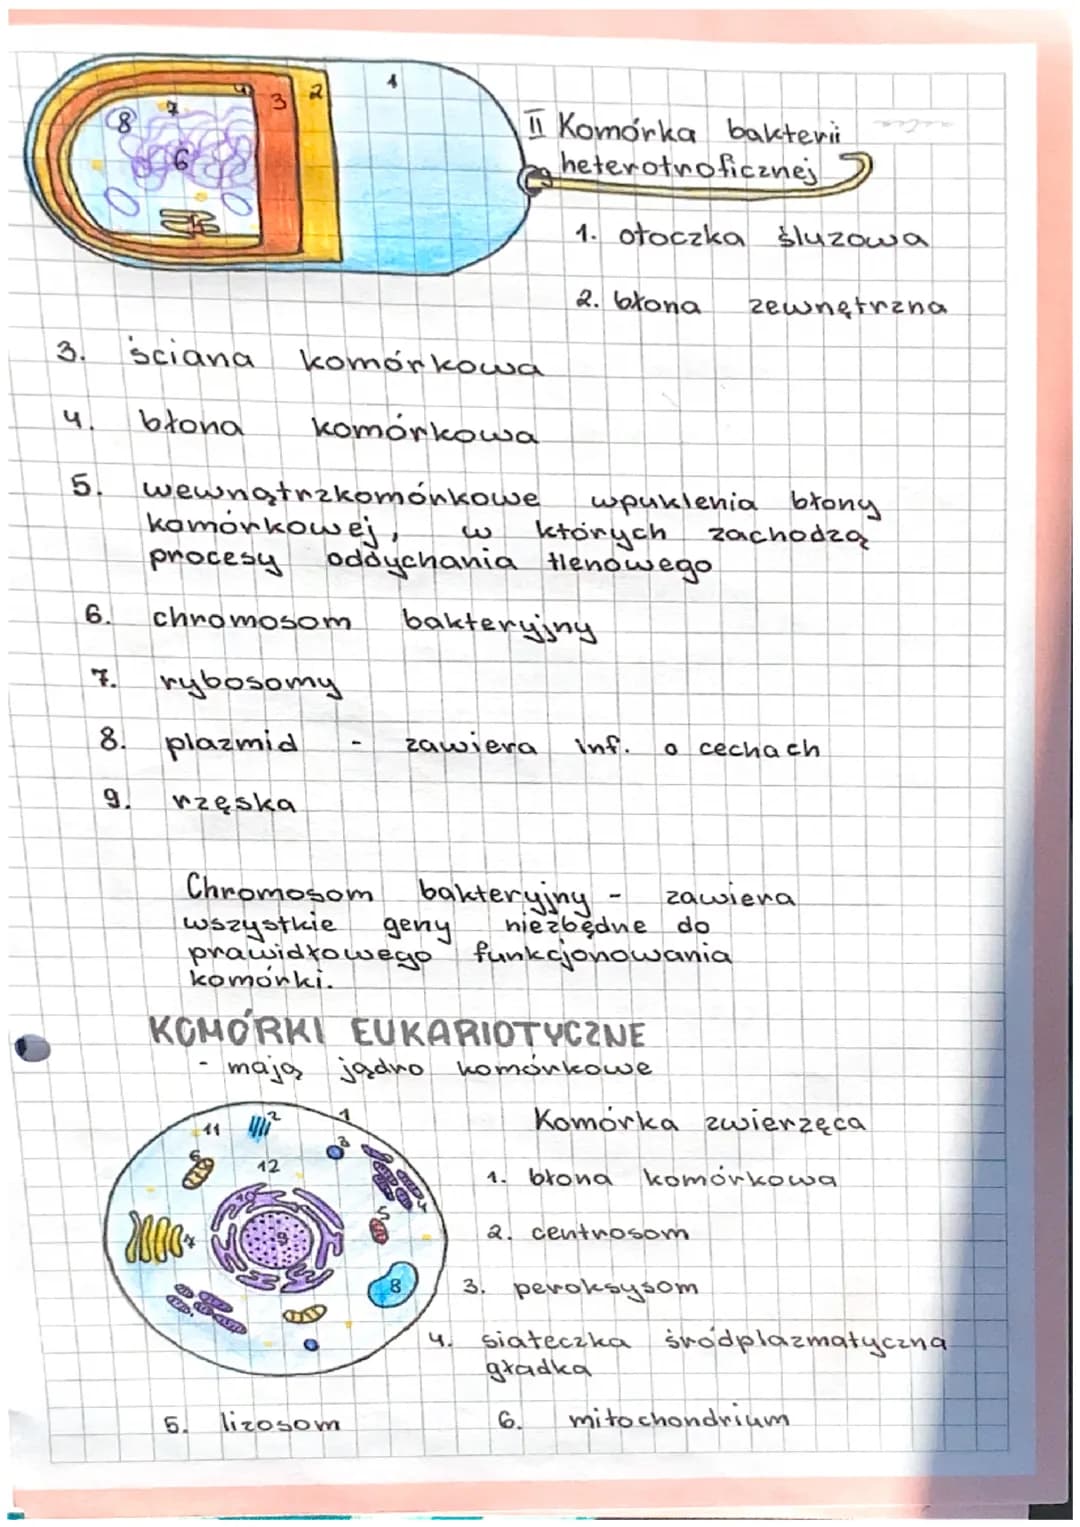 1
2
3
4
7
8
6
5
9
II Komórka bakterii
heterotroficznej
1. otoczka śluzowa
2. błona zewnętrzna
3. ściana komórkowa
4. błona komórkowa
5. wewnątrzkomórkowe wpuklenia błony
komórkowej, w których zachodzą
procesy oddychania tlenowego
6. chromosom bakteryjny
7. rybosomy
8. plazmid - zawiera inf. o cechach
9. rzęska
Chromosom bakteryjny - zawiera
wszystkie geny niezbędne do
prawidłowego funkcjonowania
komórki.
KOMÓRKI EUKARIOTYCZNE
- mają jądro komórkowe
1
2
3
4
5
6
7
8
9
10
11
12
Komórka zwierzęca
1. błona komórkowa
2. centrosom
3. peroksysom
4. siateczka śródplazmatyczna
gładka
5. lizosom 6. mitochondrium